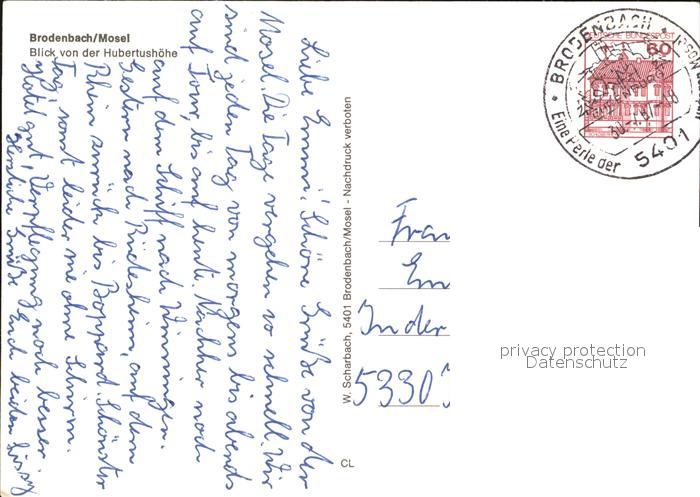 Brodenbach/Mosel
Blick von der Hubertushöhe
Liebe Emmi! Schöne Grüße von der
Mosel. Die Tage vergehen so schnell. Wir
sind jeden Tag von morgens bis abends
auf Tour, bis auf heute. Nachher noch
auf dem Schiff nach Winningen.
Gestern nach Rüdesheim, auf dem
Rhein zurück bis Boppard. Schönster
Tag, sonst leider nie ohne Schirm.
Hotel gut, Verpflegung noch besser.
Herzliche Grüße Euch beiden Sissy
W. Scharbach, 5401 Brodenbach/Mosel - Nachdruck verboten
CL
Frau
Em
In der
5330
DEUTSCHE BUNDESPOST
60
BRODENBACH
Eine Perle der
5401
privacy protection
Datenschutz